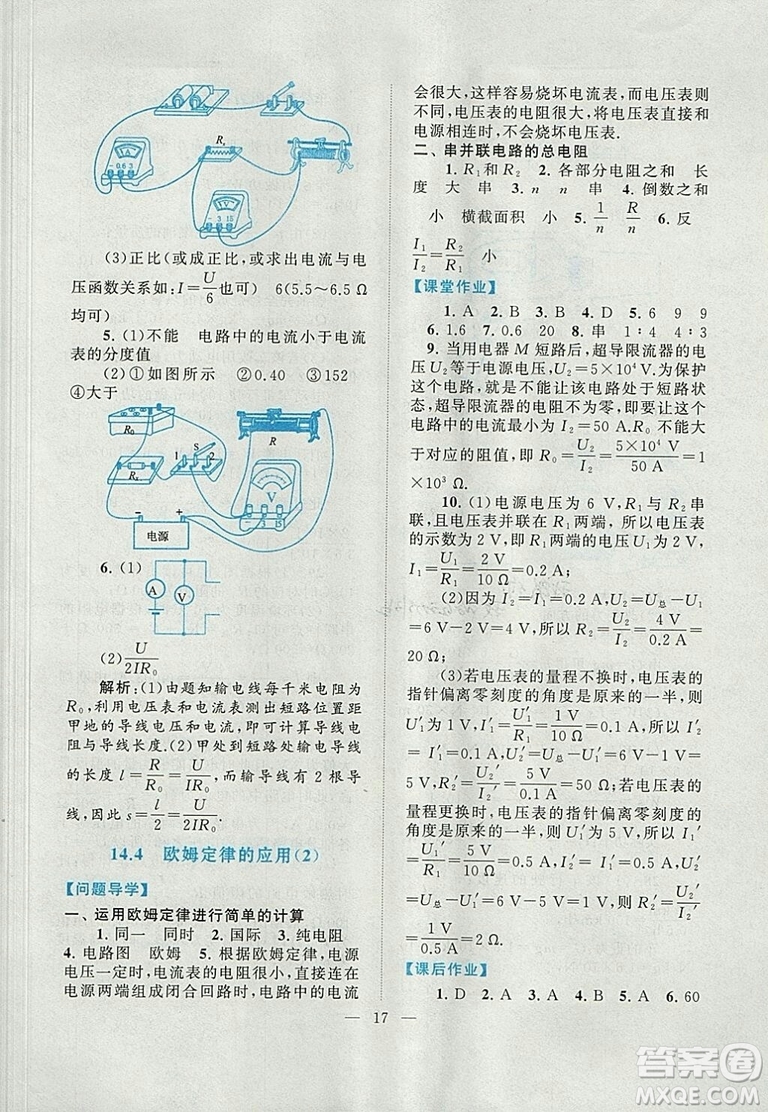 A
- 0.6 3
Rₓ
V
- 3 15
(3)正比(或成正比,或求出电流与电
压函数关系如:I=U/6 也可) 6(5.5~6.5 Ω
均可)
5. (1)不能 电路中的电流小于电流
表的分度值
(2)①如图所示 ②0.40 ③152
④大于
R₀
R
Rₓ
1 S 2
V
- 3 15
- +
电源
6. (1)
A
V
(2)U/2IR₀
解析:(1)由题知输电线每千米电阻为
R₀,利用电压表和电流表测出短路位置距
甲地的导线电压和电流,即可计算导线电
阻与导线长度.(2)甲处到短路处输电导线
的长度 l=R/R₀=U/IR₀,而输导线有 2 根导
线,因此 s=l/2=U/2IR₀.
14.4 欧姆定律的应用(2)
【问题导学】
一、运用欧姆定律进行简单的计算
1. 同一 同时 2. 国际 3. 纯电阻
4. 电路图 欧姆 5. 根据欧姆定律,电源
电压一定时,电流表的电阻很小,直接连在
电源两端组成闭合回路时,电路中的电流
会很大,这样容易烧坏电流表,而电压表则
不同,电压表的电阻很大,将其直接和
电源相连时,不会烧坏电压表.
二、串并联电路的总电阻
1. R₁和 R₂ 2. 各部分电阻之和 长
度 大 串 3. n n 串 4. 倒数之和
小 横截面积 小 5. 1/n R/n 6. 反
I₁/I₂=R₂/R₁ 小
【课堂作业】
1. A 2. B 3. B 4. D 5. 6 9 9
6. 1.6 7. 0.6 20 8. 串 1∶4 4∶3
9. 当用电器 M 短路后,超导限流器的电
压 U₂ 等于电源电压,U₂=5×10⁴ V.为保护
这个电路,就是不能让该电路处于短路状
态,超导限流器的电阻不为零,即要让这个
电路中的电流最小为 I₂=50 A.R₀ 不能大
于对应的阻值,即 R₀=U₂/I₂=5×10⁴ V/50 A=1×
10³ Ω.
10. (1)电源电压为 6 V,R₁与 R₂ 串
联,且电压表并联在 R₁ 两端,所以电压表
的示数为 2 V,即 R₁两端的电压 U₁=2 V,
I₁=U₁/R₁=2 V/10 Ω=0.2 A.
(2)因为 I=I₁=0.2 A,U₂=U总-U₁
=6 V-2 V=4 V,所以 R₂=U₂/I₂=4 V/0.2 A=
20 Ω.
(3)若电压表的量程不换时,电压表的
指针偏离零刻度的角度是原来的一半,则
U₁′为 1 V,I₁′=U₁′/R₁=1 V/10 Ω=0.1 A,所以 I₂′
=I₁′=0.1 A,U₂′=U总-U₁′=6 V-1 V=
5 V,R₂′=U₂′/I₂′=5 V/0.1 A=50 Ω;若电压表的
量程更换时,电压表的指针偏离零刻度的
角度是原来的一半,则 U₁′=5 V,I₁′=
U₁′/R₁=5 V/10 Ω=0.5 A,所以 I₂′=I₁′=0.5 A,
U₂′=U总-U₁′=6 V-5 V=1 V,R₂′=U₂′/I₂′=
1 V/0.5 A=2 Ω.
【课后作业】
1. D 2. A 3. A 4. A 5. A 6. 60
— 17 —
答案圈
MXQE.COM